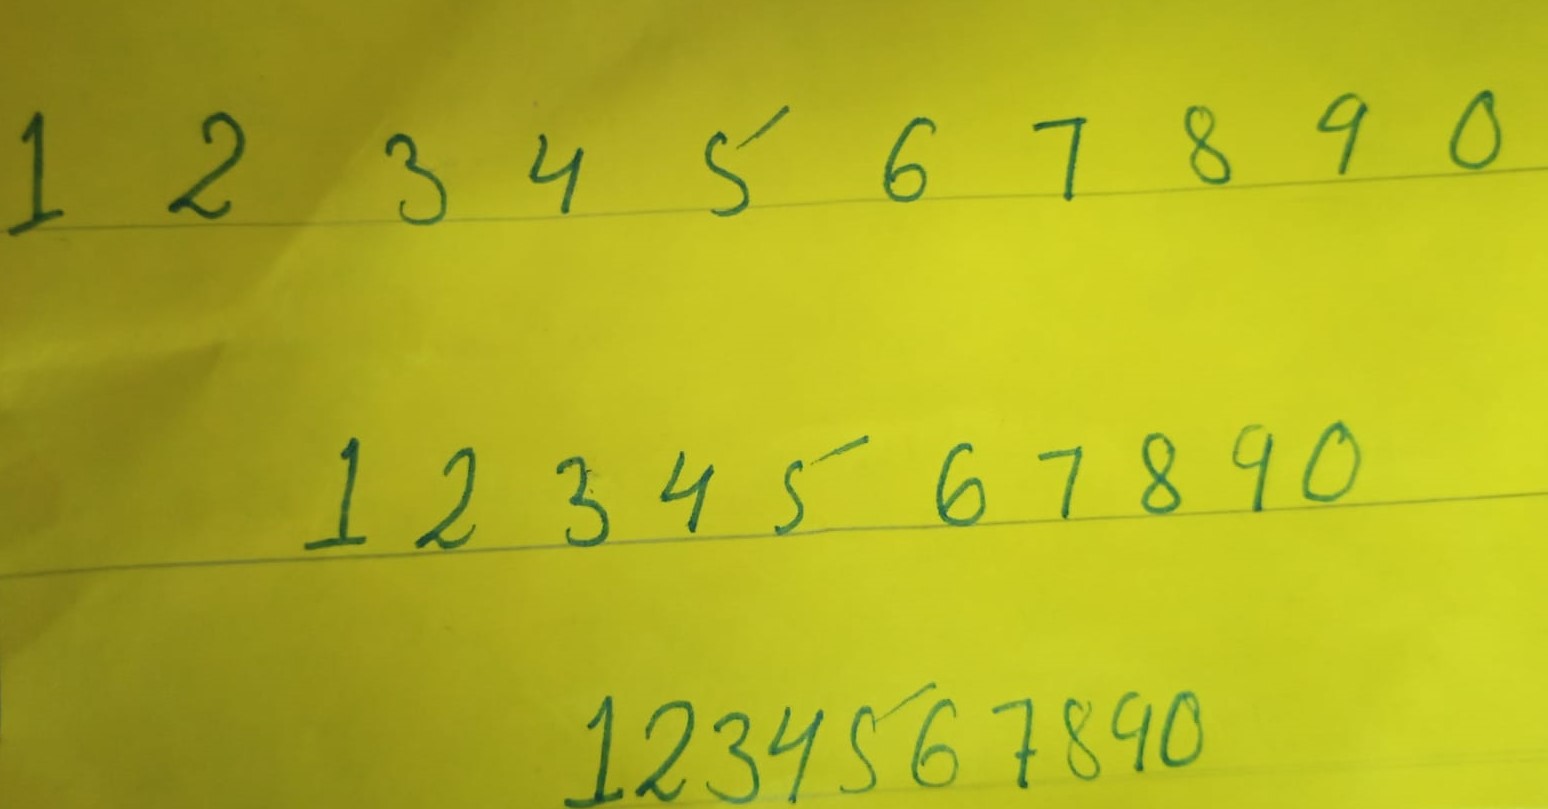 1 2 3 4 5 6 7 8 9 0
1 2 3 4 5 6 7 8 9 0
1234567890